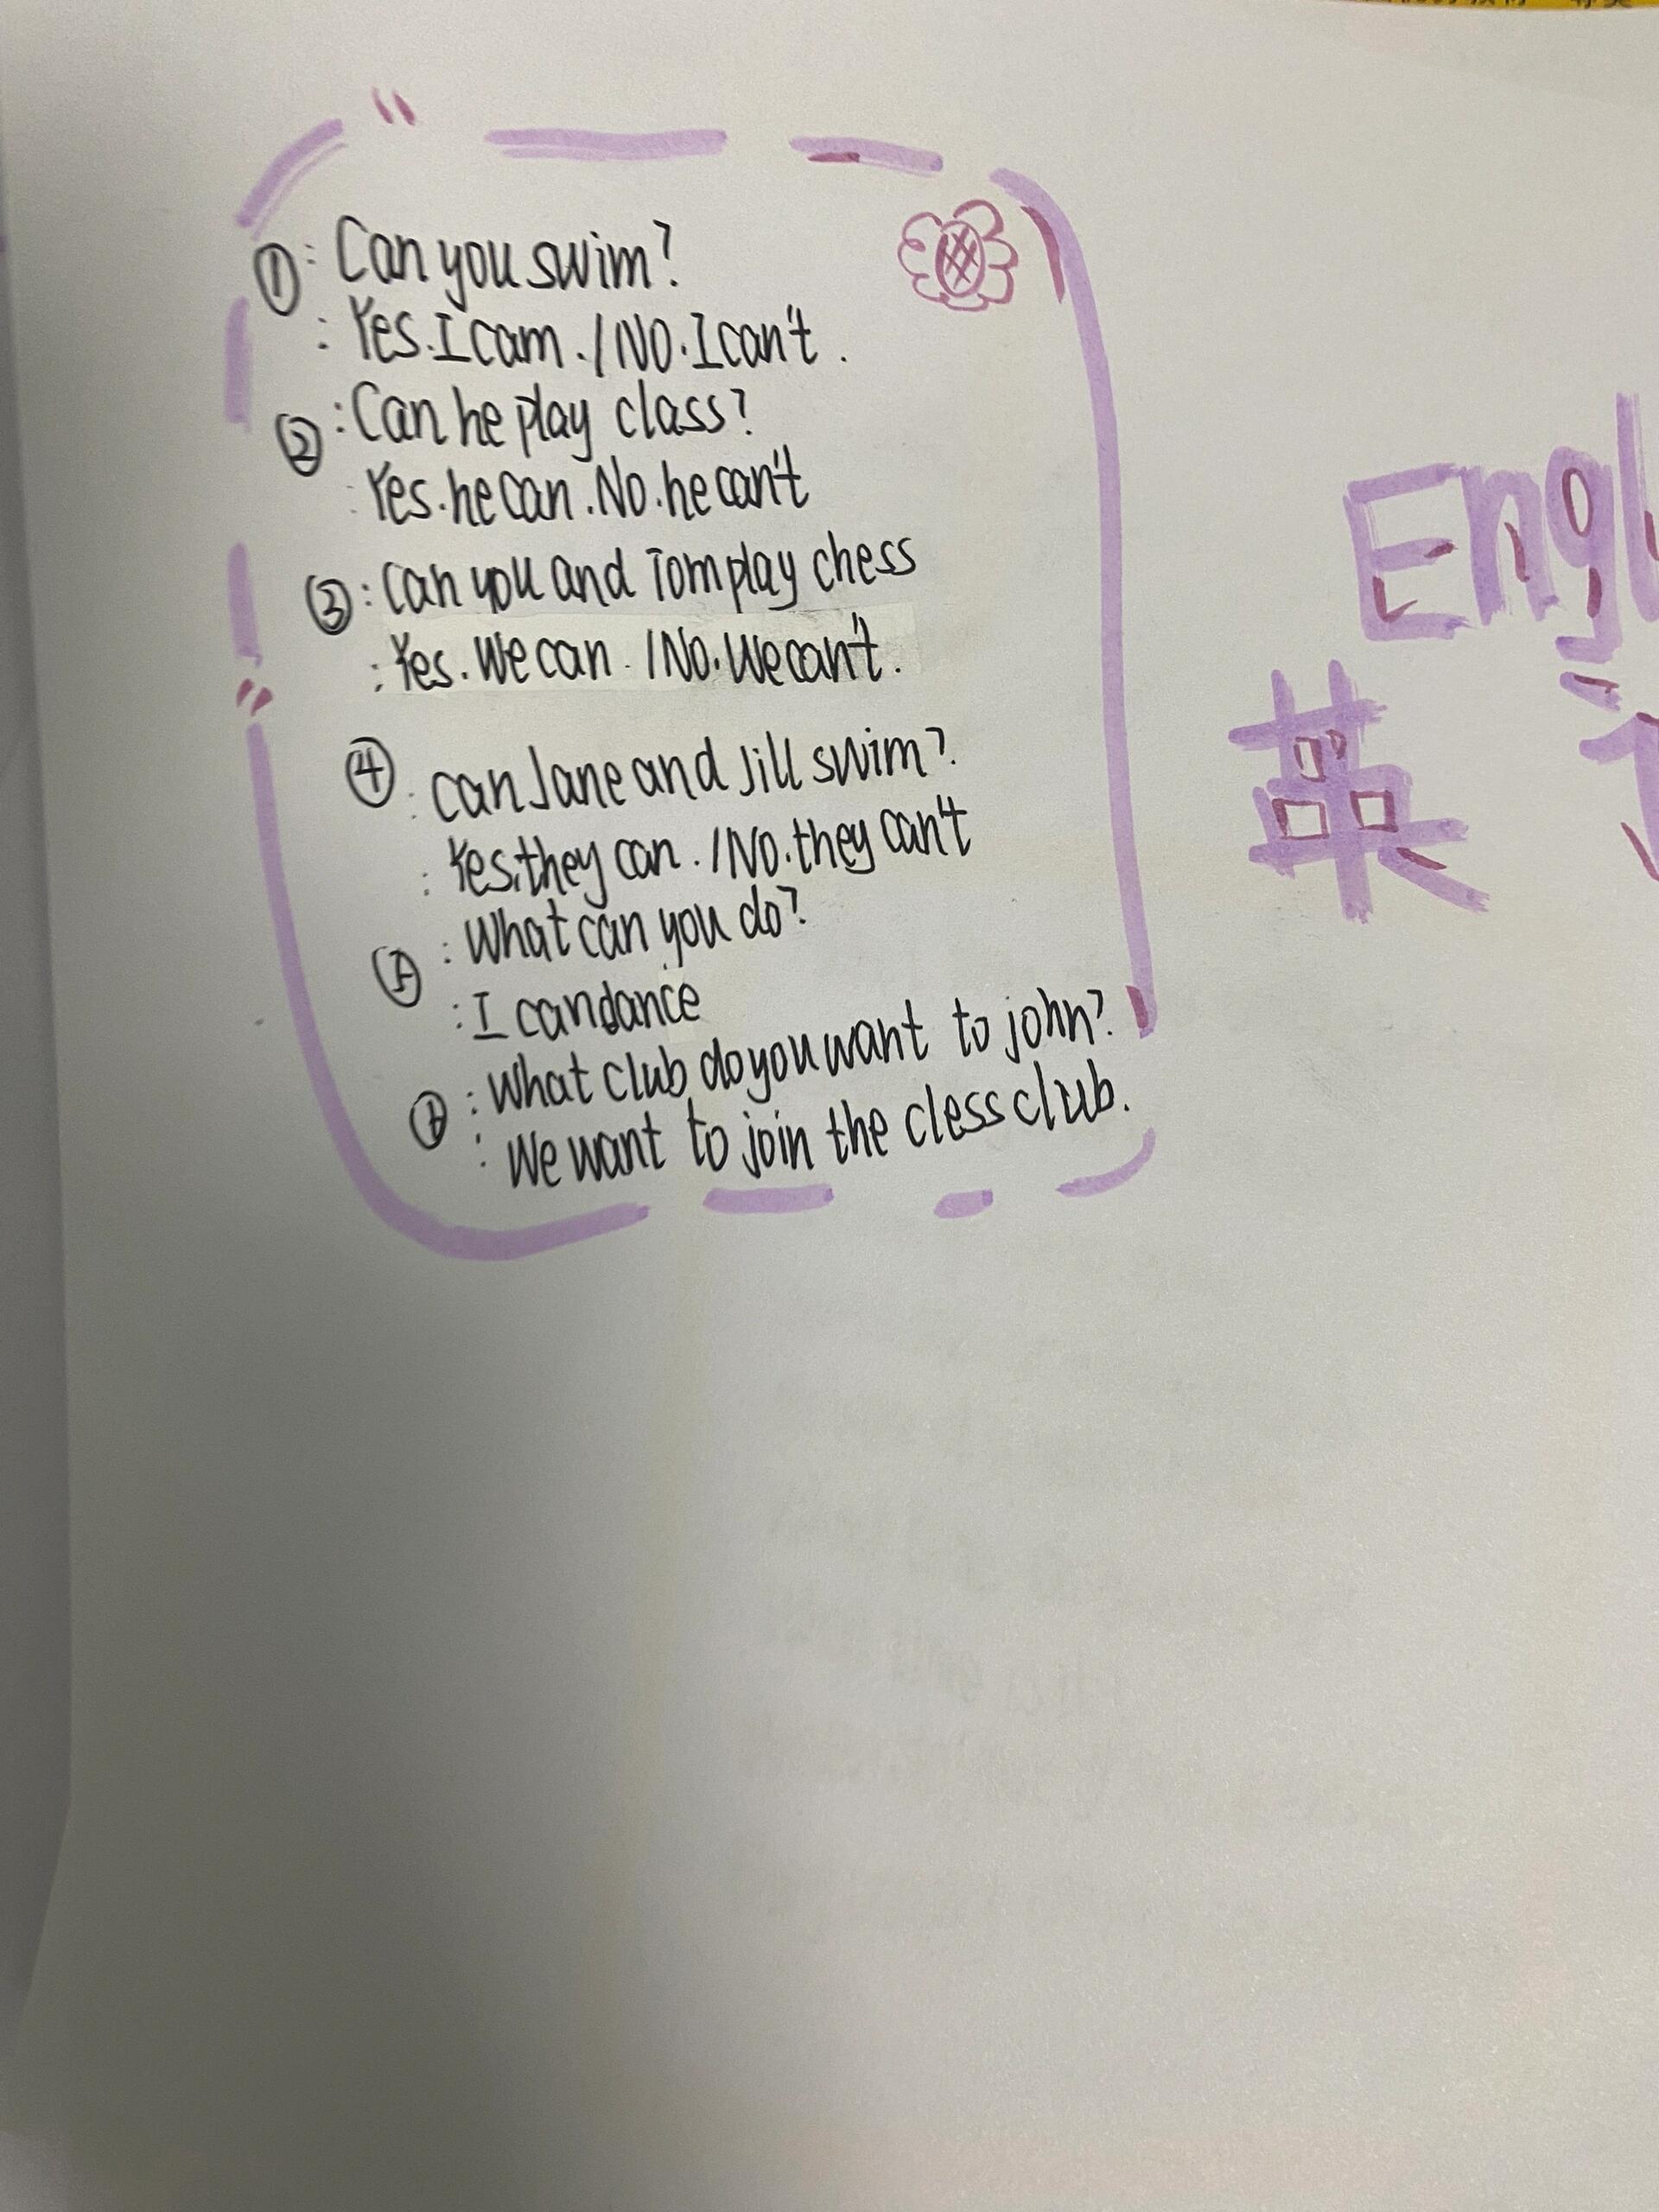 ①: Can you swim?
: Yes. I cam. / NO. I can't.
②: Can he play class?
Yes. he can. No. he can't
③: Can you and Tom play chess
: Yes. We can. / No. We can't.
④: can Jane and Jill swim?
: Yes, they can. / No. they can't
: What can you do?
: I can dance
: What club do you want to john?
: We want to join the cless club.
Engl
英